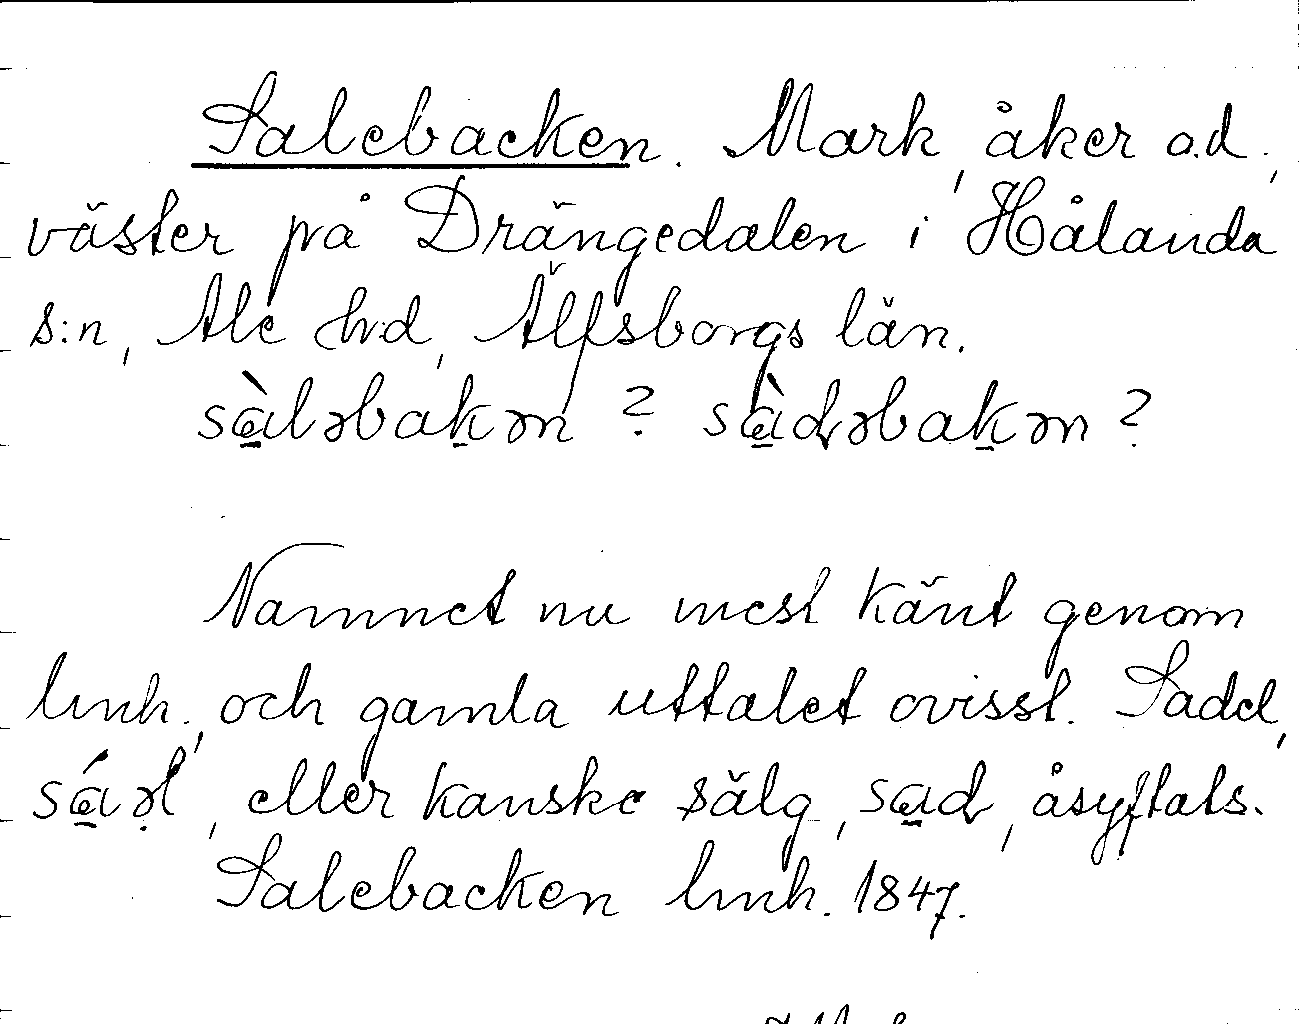 Salebacken. Mark, åker o.d.,
väster på Drängedalen i Hålanda
s:n, Ale h:d, Älfsborgs län.
sàləbakən ? sàdəbakən ?
Namnet nu mest känt genom
lmh., och gamla uttalet ovisst. Sadel,
sáəl, eller kanske sälg, sad, åsyftats.
Salebacken lmh. 1847.